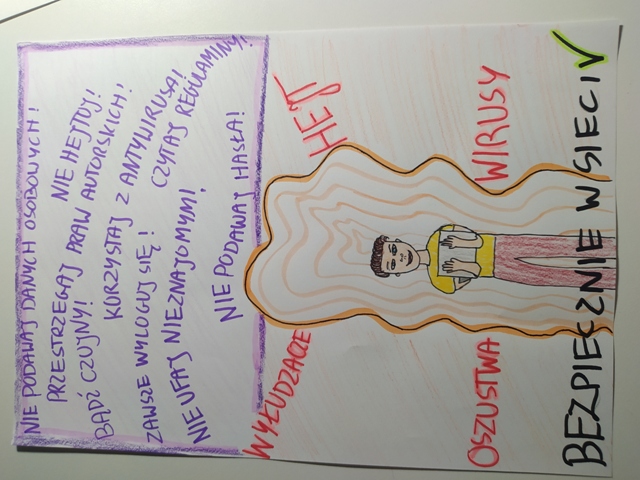 NIE PODAWAJ DANYCH OSOBOWYCH!
NIE HEJTUJ!
PRZESTRZEGAJ PRAW AUTORSKICH!
BĄDŹ CZUJNY!
KORZYSTAJ Z ANTYWIRUSA!
ZAWSZE WYLOGUJ SIĘ!
CZYTAJ REGULAMINY!
NIE UFAJ NIEZNAJOMYM!
NIE PODAWAJ HASŁA!
WYŁUDZACZE
HEJT
OSZUSTWA
WIRUSY
BEZPIECZNIE W SIECI V